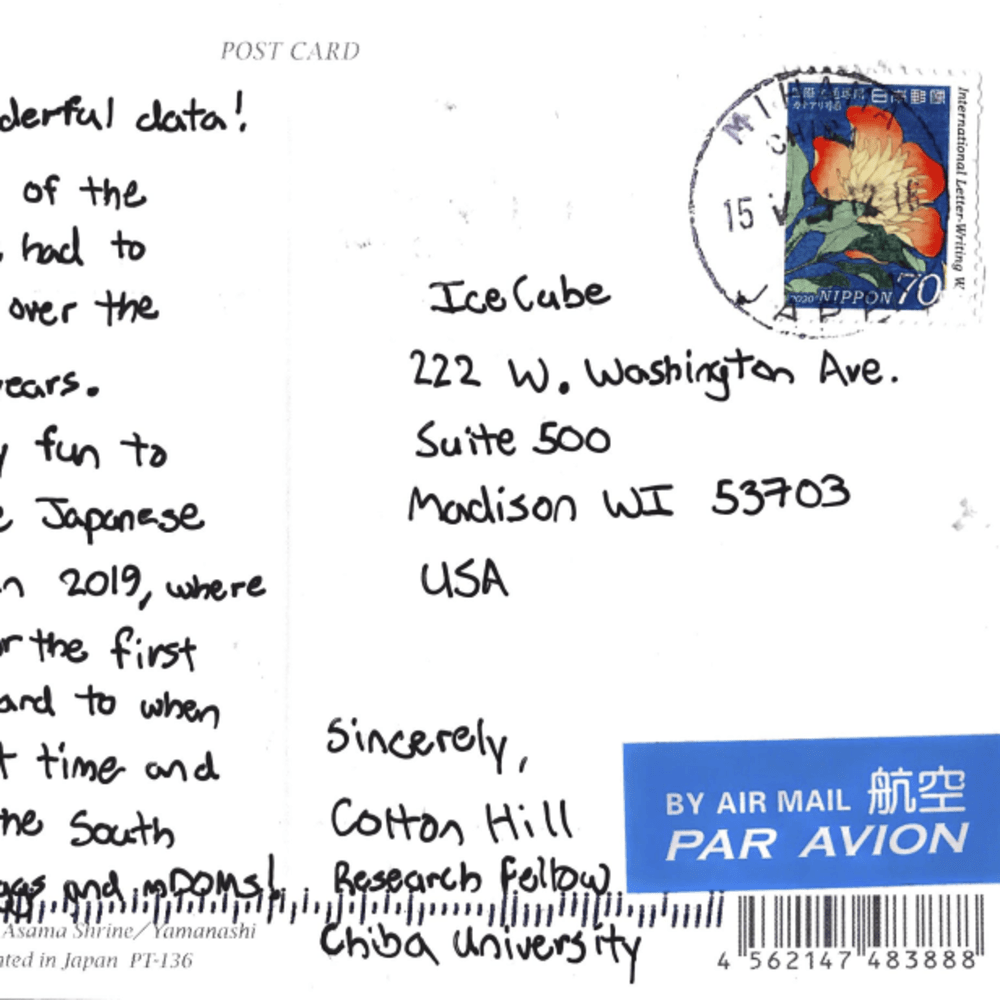 POST CARD
derful data!
of the
had to
over the
ears.
fun to
Japanese
n 2019, where
r the first
ard to when
t time and
he South
ggs and mDOMs!
Asama Shrine/Yamanashi
nted in Japan PT-136
IceCube
222 W. Washington Ave.
Suite 500
Madison WI 53703
USA
Sincerely,
Colton Hill
Research Fellow
Chiba University
日本郵便
International Letter-Writing W
2020 NIPPON 70
15
12-18
BY AIR MAIL 航空
PAR AVION
4 562147 483888